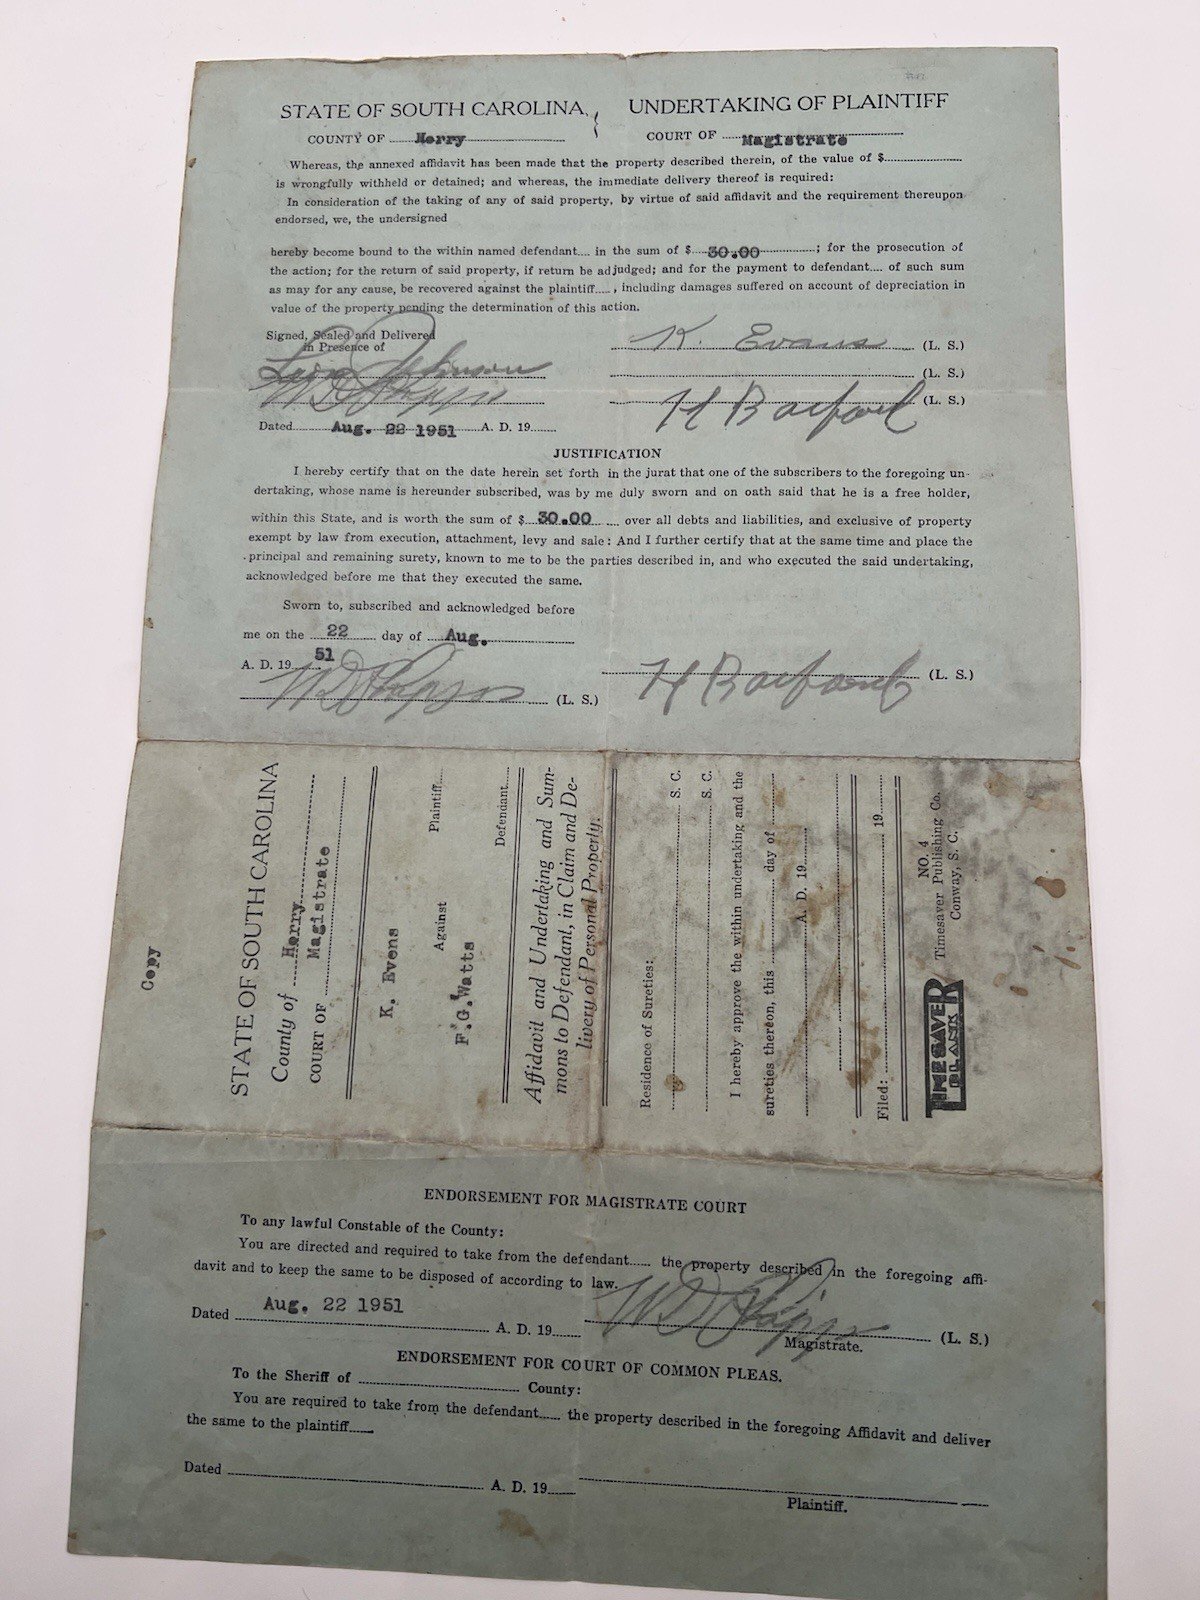 STATE OF SOUTH CAROLINA, UNDERTAKING OF PLAINTIFF
COUNTY OF Horry COURT OF Magistrate
Whereas, the annexed affidavit has been made that the property described therein, of the value of $
is wrongfully withheld or detained; and whereas, the immediate delivery thereof is required:
In consideration of the taking of any of said property, by virtue of said affidavit and the requirement thereupon
endorsed, we, the undersigned
hereby become bound to the within named defendant.... in the sum of $ 30.00 ; for the prosecution of
the action; for the return of said property, if return be adjudged; and for the payment to defendant.... of such sum
as may for any cause, be recovered against the plaintiff...., including damages suffered on account of depreciation in
value of the property pending the determination of this action.
Signed, Sealed and Delivered
in Presence of
K. Evans (L. S.)
Johnson (L. S.)
W D H (L. S.)
Dated Aug. 22 1951 A. D. 19......
JUSTIFICATION
I hereby certify that on the date herein set forth in the jurat that one of the subscribers to the foregoing un-
dertaking, whose name is hereunder subscribed, was by me duly sworn and on oath said that he is a free holder,
within this State, and is worth the sum of $ 30.00 over all debts and liabilities, and exclusive of property
exempt by law from execution, attachment, levy and sale: And I further certify that at the same time and place the
principal and remaining surety, known to me to be the parties described in, and who executed the said undertaking,
acknowledged before me that they executed the same.
Sworn to, subscribed and acknowledged before
me on the 22 day of Aug.
A. D. 19 51
W D (L. S.) H (L. S.)
Copy
STATE OF SOUTH CAROLINA
County of Horry
COURT OF Magistrate
K. Evens
Plaintiff
Against
F.G.Watts
Defendant
Affidavit and Undertaking and Sum-
mons to Defendant, in Claim and De-
livery of Personal Property.
Residence of Sureties:
S. C.
S. C.
I hereby approve the within undertaking and the
sureties thereon, this day of
A. D. 19
Filed: 19
TIMESAVER
BLANK
NO. 4
Timesaver Publishing Co.
Conway, S. C.
ENDORSEMENT FOR MAGISTRATE COURT
To any lawful Constable of the County:
You are directed and required to take from the defendant...... the property described in the foregoing affi-
davit and to keep the same to be disposed of according to law.
Dated Aug. 22 1951 A. D. 19 W D (L. S.)
Magistrate.
ENDORSEMENT FOR COURT OF COMMON PLEAS.
To the Sheriff of County:
You are required to take from the defendant...... the property described in the foregoing Affidavit and deliver
the same to the plaintiff......
Dated A. D. 19
Plaintiff.